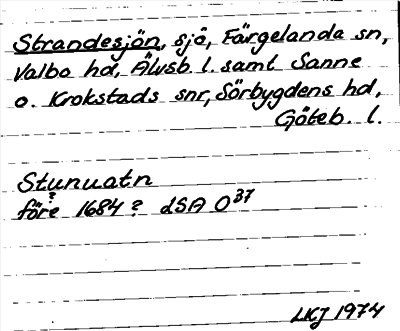 Strandesjön, sjö, Färgelanda sn,
Valbo hd, Älvsb. l. samt Sanne
o. Krokstads snr, Sörbygdens hd,
Göteb. l.
Stunuatn
?
före 1684 ? dSA O37
LKJ 1974